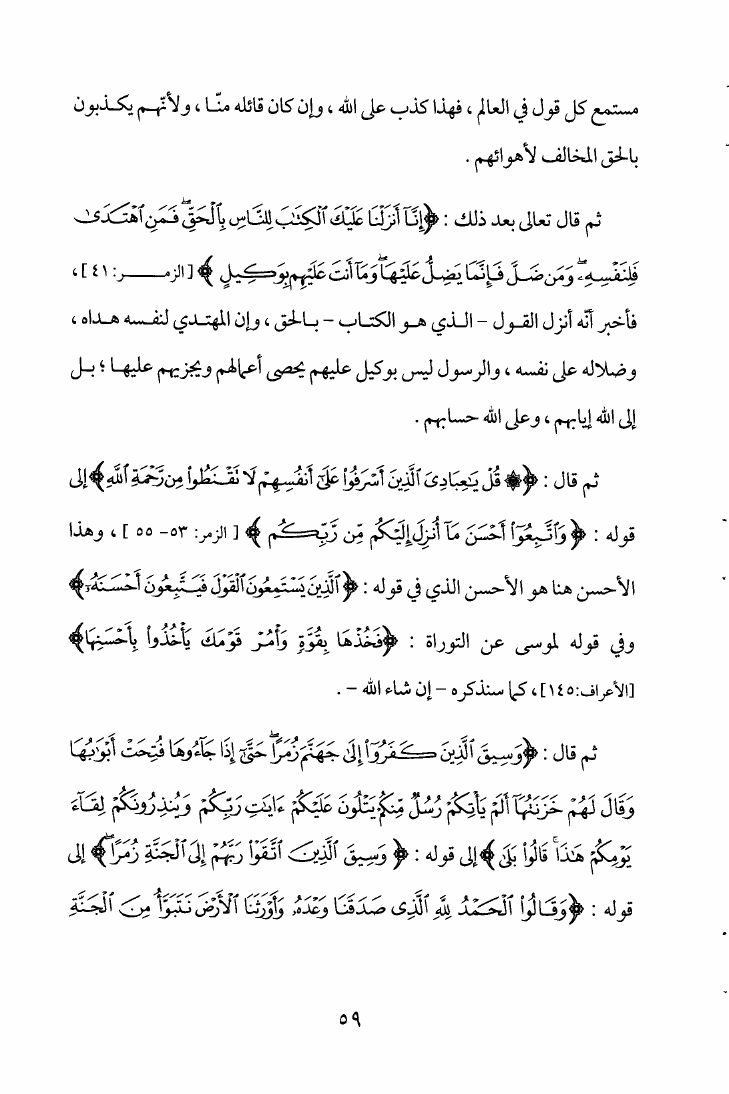 مستمع كل قول في العالم ، فهذا كذب على الله ، وإن كان قائله منّا ، ولأنّهم يكذبون
بالحق المخالف لأهوائهم .
ثم قال تعالى بعد ذلك : ﴿إِنَّآ أَنزَلۡنَا عَلَيۡكَ ٱلۡكِتَٰبَ لِلنَّاسِ بِٱلۡحَقِّۖ فَمَنِ ٱهۡتَدَىٰ
فَلِنَفۡسِهِۦۖ وَمَن ضَلَّ فَإِنَّمَا يَضِلُّ عَلَيۡهَاۖ وَمَآ أَنتَ عَلَيۡهِم بِوَكِيلٍ ﴾ [ الزمر: ٤١ ] ،
فأخبر أنّه أنزل القول – الذي هو الكتاب – بالحق ، وإن المهتدي لنفسه هداه ،
وضلاله على نفسه ، والرسول ليس بوكيل عليهم يحصى أعمالهم ويجزيهم عليها ؛ بل
إلى الله إيابهم ، وعلى الله حسابهم .
ثم قال : ﴿۞ قُلۡ يَٰعِبَادِيَ ٱلَّذِينَ أَسۡرَفُواْ عَلَىٰٓ أَنفُسِهِمۡ لَا تَقۡنَطُواْ مِن رَّحۡمَةِ ٱللَّهِ﴾ إلى
قوله : ﴿ وَٱتَّبِعُوٓاْ أَحۡسَنَ مَآ أُنزِلَ إِلَيۡكُم مِّن رَّبِّكُم ﴾ [ الزمر: ٥٣- ٥٥ ] ، وهذا
الأحسن هنا هو الأحسن الذي في قوله : ﴿ٱلَّذِينَ يَسۡتَمِعُونَ ٱلۡقَوۡلَ فَيَتَّبِعُونَ أَحۡسَنَهُۥٓ﴾
وفي قوله لموسى عن التوراة : ﴿فَخُذۡهَا بِقُوَّةٖ وَأۡمُرۡ قَوۡمَكَ يَأۡخُذُواْ بِأَحۡسَنِهَا﴾
[الأعراف:١٤٥] ، كما سنذكره – إن شاء الله – .
ثم قال : ﴿وَسِيقَ ٱلَّذِينَ كَفَرُوٓاْ إِلَىٰ جَهَنَّمَ زُمَرًاۖ حَتَّىٰٓ إِذَا جَآءُوهَا فُتِحَتۡ أَبۡوَٰبُهَا
وَقَالَ لَهُمۡ خَزَنَتُهَآ أَلَمۡ يَأۡتِكُمۡ رُسُلٞ مِّنكُمۡ يَتۡلُونَ عَلَيۡكُمۡ ءَايَٰتِ رَبِّكُمۡ وَيُنذِرُونَكُمۡ لِقَآءَ
يَوۡمِكُمۡ هَٰذَاۚ قَالُواْ بَلَىٰ ﴾ إلى قوله : ﴿ وَسِيقَ ٱلَّذِينَ ٱتَّقَوۡاْ رَبَّهُمۡ إِلَى ٱلۡجَنَّةِ زُمَرًاۖ ﴾ إلى
قوله : ﴿وَقَالُواْ ٱلۡحَمۡدُ لِلَّهِ ٱلَّذِي صَدَقَنَا وَعۡدَهُۥ وَأَوۡرَثَنَا ٱلۡأَرۡضَ نَتَبَوَّأُ مِنَ ٱلۡجَنَّةِ
٥٩